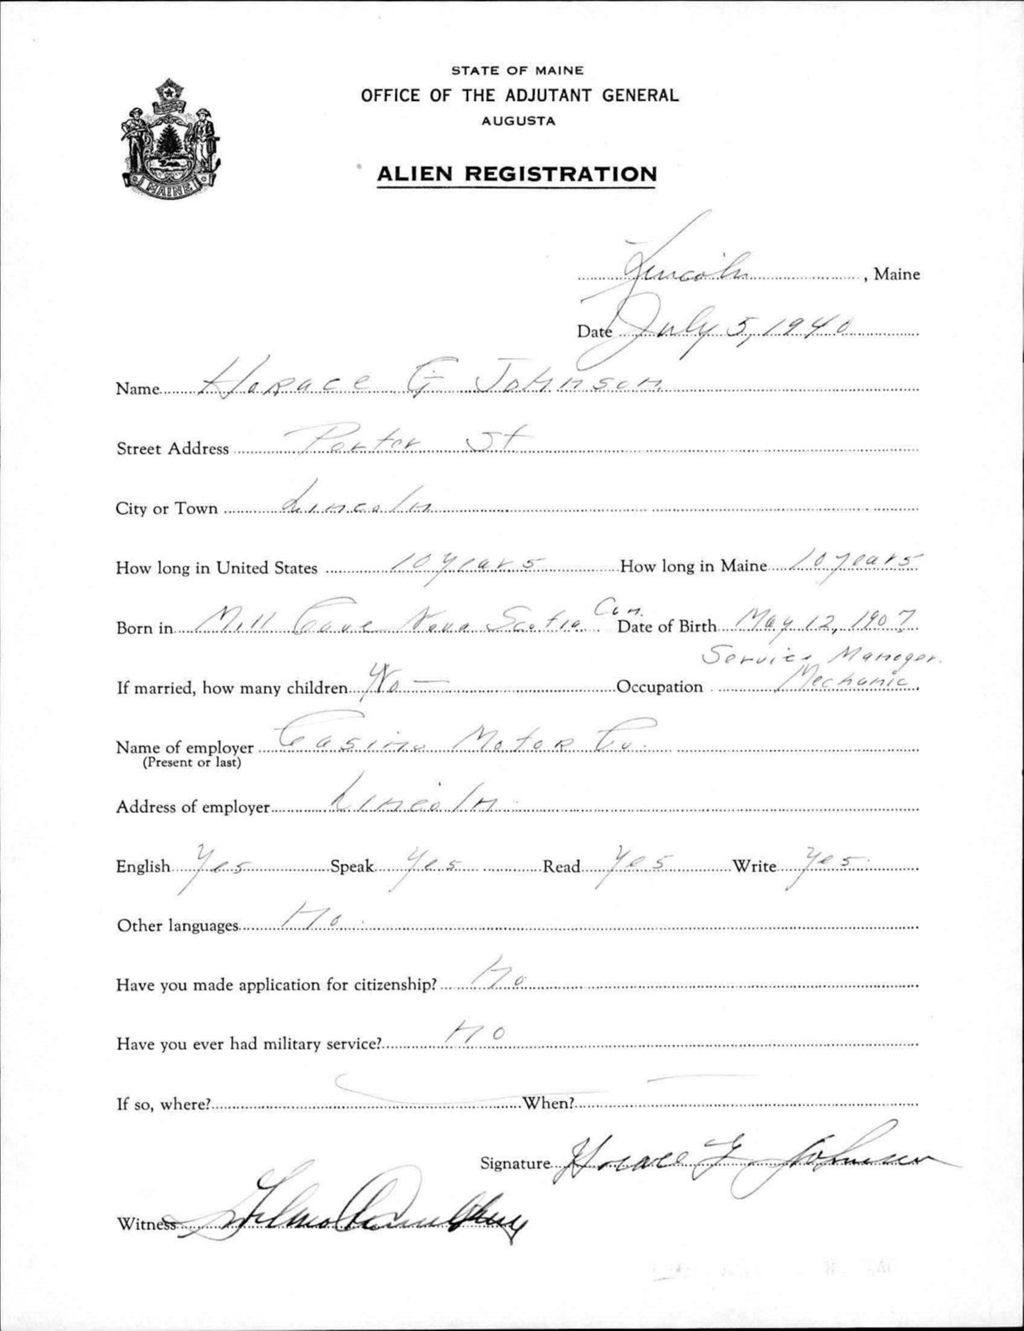 STATE OF MAINE
OFFICE OF THE ADJUTANT GENERAL
AUGUSTA
ALIEN REGISTRATION
MAINE
Lincoln, Maine
Date July 5, 1940
Name Horace G Johnson
Street Address Porter St
City or Town Lincoln
How long in United States 10 years How long in Maine 10 years
Born in Mill Cove Nova Scotia Can. Date of Birth May 12, 1907
Service Manager.
If married, how many children No — Occupation Mechanic
Name of employer Casino Motor Co.
(Present or last)
Address of employer Lincoln
English Yes Speak Yes Read Yes Write Yes
Other languages No
Have you made application for citizenship? No
Have you ever had military service? No
If so, where? When?
Signature Horace G Johnson
Witness